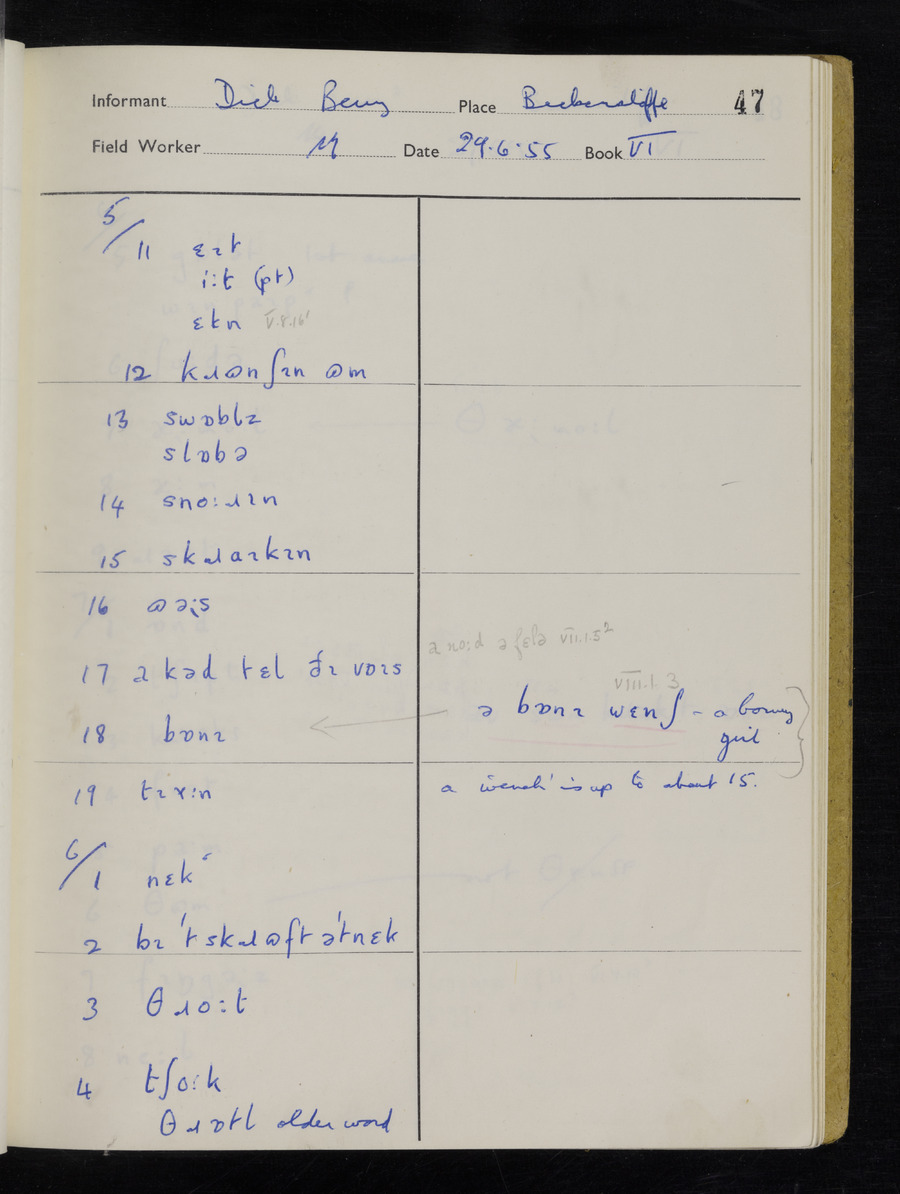 Informant Dick Berry Place Beckermet 47
Field Worker Date 29.6.55 Book VI
5/11 ɛɪt
i:t (pt)
ɛtn V.8.16'
12 kɹɷnʃɪn ɷm
13 swɒblɪ
slɒbə
14 sno:ɹɪn
15 skɹaɪkɪn
16 ɷəɪs
ə no:d ə fɛlə VII.1.5²
17 ə kəd tɛl ðɪ vɒɪs
VIII.1.3
18 bɒnɪ ← ə bɒnɪ wɛnʃ – a bonny
girl
19 tɪɤ:n a 'wench' is up to about 15.
6/1 nɛk
2 bɪ 't skɹɷft ə'tnɛk
3 θɹo:t
4 tʃo:k
θɹɒtl older word